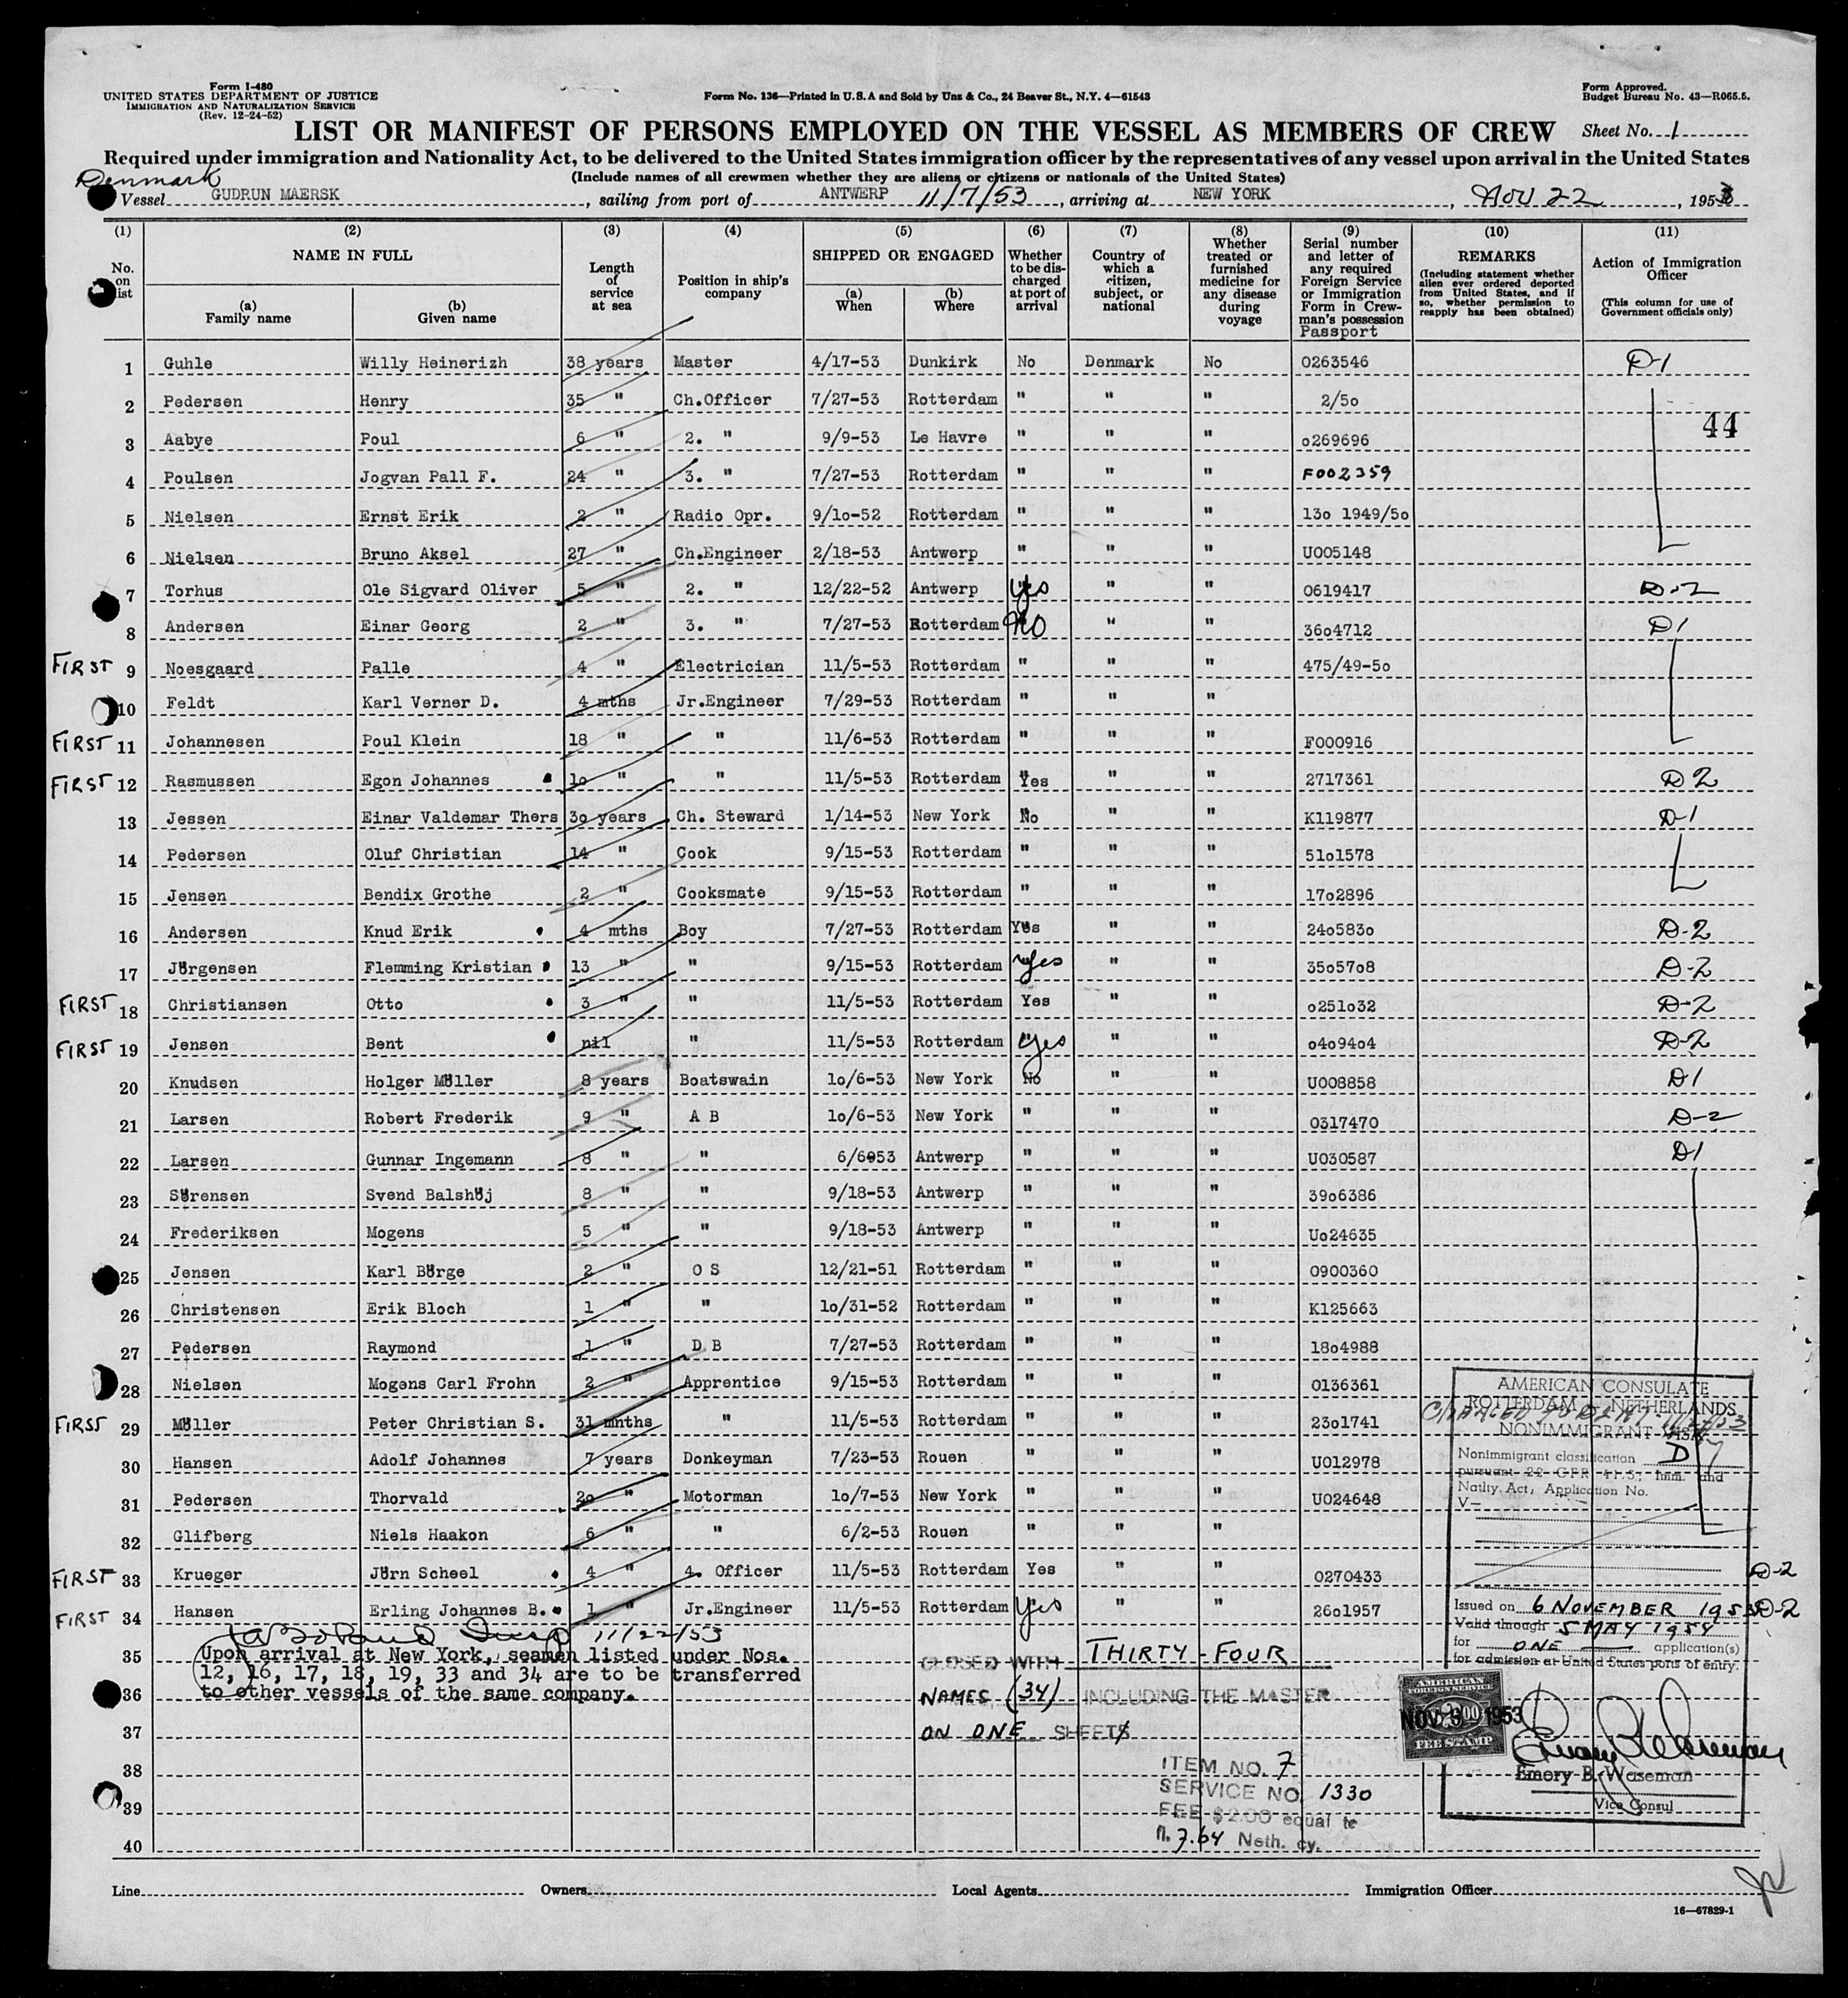 Form I-480
UNITED STATES DEPARTMENT OF JUSTICE
IMMIGRATION AND NATURALIZATION SERVICE
(Rev. 12-24-52)
Form No. 136—Printed in U.S.A and Sold by Unz & Co., 24 Beaver St., N.Y. 4—61543
Form Approved.
Budget Bureau No. 43—R065.5.
LIST OR MANIFEST OF PERSONS EMPLOYED ON THE VESSEL AS MEMBERS OF CREW Sheet No. 1
Required under immigration and Nationality Act, to be delivered to the United States immigration officer by the representatives of any vessel upon arrival in the United States
(Include names of all crewmen whether they are aliens or citizens or nationals of the United States)
Denmark
Vessel GUDRUN MAERSK, sailing from port of ANTWERP 11/7/53, arriving at NEW YORK, Nov 22, 1953
(1) (2) (3) (4) (5) (6) (7) (8) (9) (10) (11)
No. on list
NAME IN FULL
(a) Family name
(b) Given name
Length of service at sea
Position in ship's company
SHIPPED OR ENGAGED
(a) When
(b) Where
Whether to be discharged at port of arrival
Country of which a citizen, subject, or national
Whether treated or furnished medicine for any disease during voyage
Serial number and letter of any required Foreign Service or Immigration Form in Crewman's possession
Passport
REMARKS
(Including statement whether alien ever ordered deported from United States, and if so, whether permission to reapply has been obtained)
Action of Immigration Officer
(This column for use of Government officials only)
1 Guhle Willy Heinerizh 38 years Master 4/17-53 Dunkirk No Denmark No 0263546 D-1
2 Pedersen Henry 35 " Ch.Officer 7/27-53 Rotterdam " " " 2/5o
44
3 Aabye Poul 6 " 2. " 9/9-53 Le Havre " " " o269696
4 Poulsen Jogvan Pall F. 24 " 3. " 7/27-53 Rotterdam " " " F002359
5 Nielsen Ernst Erik 2 " Radio Opr. 9/1o-52 Rotterdam " " " 13o 1949/5o
6 Nielsen Bruno Aksel 27 " Ch.Engineer 2/18-53 Antwerp " " " U005148
7 Torhus Ole Sigvard Oliver 5 " 2. " 12/22-52 Antwerp yes " " 0619417 D-2
8 Andersen Einar Georg 2 " 3. " 7/27-53 Rotterdam No " " 36o4712 D1
FIRST 9 Noesgaard Palle 4 " Electrician 11/5-53 Rotterdam " " " 475/49-5o
10 Feldt Karl Verner D. 4 mths Jr.Engineer 7/29-53 Rotterdam " " "
FIRST 11 Johannesen Poul Klein 18 " " 11/6-53 Rotterdam " " " F000916
FIRST 12 Rasmussen Egon Johannes 1o " " 11/5-53 Rotterdam Yes " " 2717361 D2
13 Jessen Einar Valdemar Thers 3o years Ch. Steward 1/14-53 New York No " " K119877 D-1
14 Pedersen Oluf Christian 14 " Cook 9/15-53 Rotterdam " " " 51o1578
15 Jensen Bendix Grothe 2 " Cooksmate 9/15-53 Rotterdam " " " 17o2896
16 Andersen Knud Erik 4 mths Boy 7/27-53 Rotterdam Yes " " 24o583o D-2
17 Jörgensen Flemming Kristian 13 " " 9/15-53 Rotterdam yes " " 35o57o8 D-2
FIRST 18 Christiansen Otto 3 " " 11/5-53 Rotterdam Yes " " o251o32 D-2
FIRST 19 Jensen Bent nil " 11/5-53 Rotterdam yes " " o4o94o4 D-2
20 Knudsen Holger Möller 8 years Boatswain 1o/6-53 New York No " " U008858 D1
21 Larsen Robert Frederik 9 " A B 1o/6-53 New York " " " 0317470 D-2
22 Larsen Gunnar Ingemann 8 " " 6/6953 Antwerp " " " U030587 D1
23 Sörensen Svend Balshöj 8 " " 9/18-53 Antwerp " " " 39o6386
24 Frederiksen Mogens 5 " " 9/18-53 Antwerp " " " Uo24635
25 Jensen Karl Börge 2 " O S 12/21-51 Rotterdam " " " 0900360
26 Christensen Erik Bloch 1 " " 1o/31-52 Rotterdam " " " K125663
27 Pedersen Raymond 1 " D B 7/27-53 Rotterdam " " " 18o4988
28 Nielsen Mogens Carl Frohn 2 " Apprentice 9/15-53 Rotterdam " " " 0136361
FIRST 29 Möller Peter Christian S. 31 mnths " 11/5-53 Rotterdam " " " 23o1741
30 Hansen Adolf Johannes 7 years Donkeyman 7/23-53 Rouen " " " U012978
31 Pedersen Thorvald 2o " Motorman 1o/7-53 New York " " " U024648
32 Glifberg Niels Haakon 6 " " 6/2-53 Rouen " " "
FIRST 33 Krueger Jörn Scheel 4 " 4. Officer 11/5-53 Rotterdam Yes " " 0270433 D-2
FIRST 34 Hansen Erling Johannes B. 1 " Jr.Engineer 11/5-53 Rotterdam yes " " 26o1957 D-2
11/22/53
35 Upon arrival at New York, seamen listed under Nos.
12, 16, 17, 18, 19, 33 and 34 are to be transferred
36 to other vessels of the same company.
37
38
39
40
CLOSED WITH THIRTY-FOUR
NAMES (34) INCLUDING THE MASTER
ON ONE SHEETS
ITEM NO. 7
SERVICE NO. 1330
FEE $2.00 equal to
fl. 7.64 Neth. cy.
AMERICAN CONSULATE
ROTTERDAM - NETHERLANDS
NONIMMIGRANT VISA
Nonimmigrant classification D
pursuant 22 CFR 41.5; Imm. and
Natlty. Act, Application No.
V-
Issued on 6 NOVEMBER 1953
Valid through 5 MAY 1954
for ONE application(s)
for admission at United States ports of entry.
AMERICAN
FOREIGN SERVICE
2.00
NOV 6 1953
FEE STAMP
Emery B. Waseman
Vice Consul
Line Owners Local Agents Immigration Officer
16—67829-1